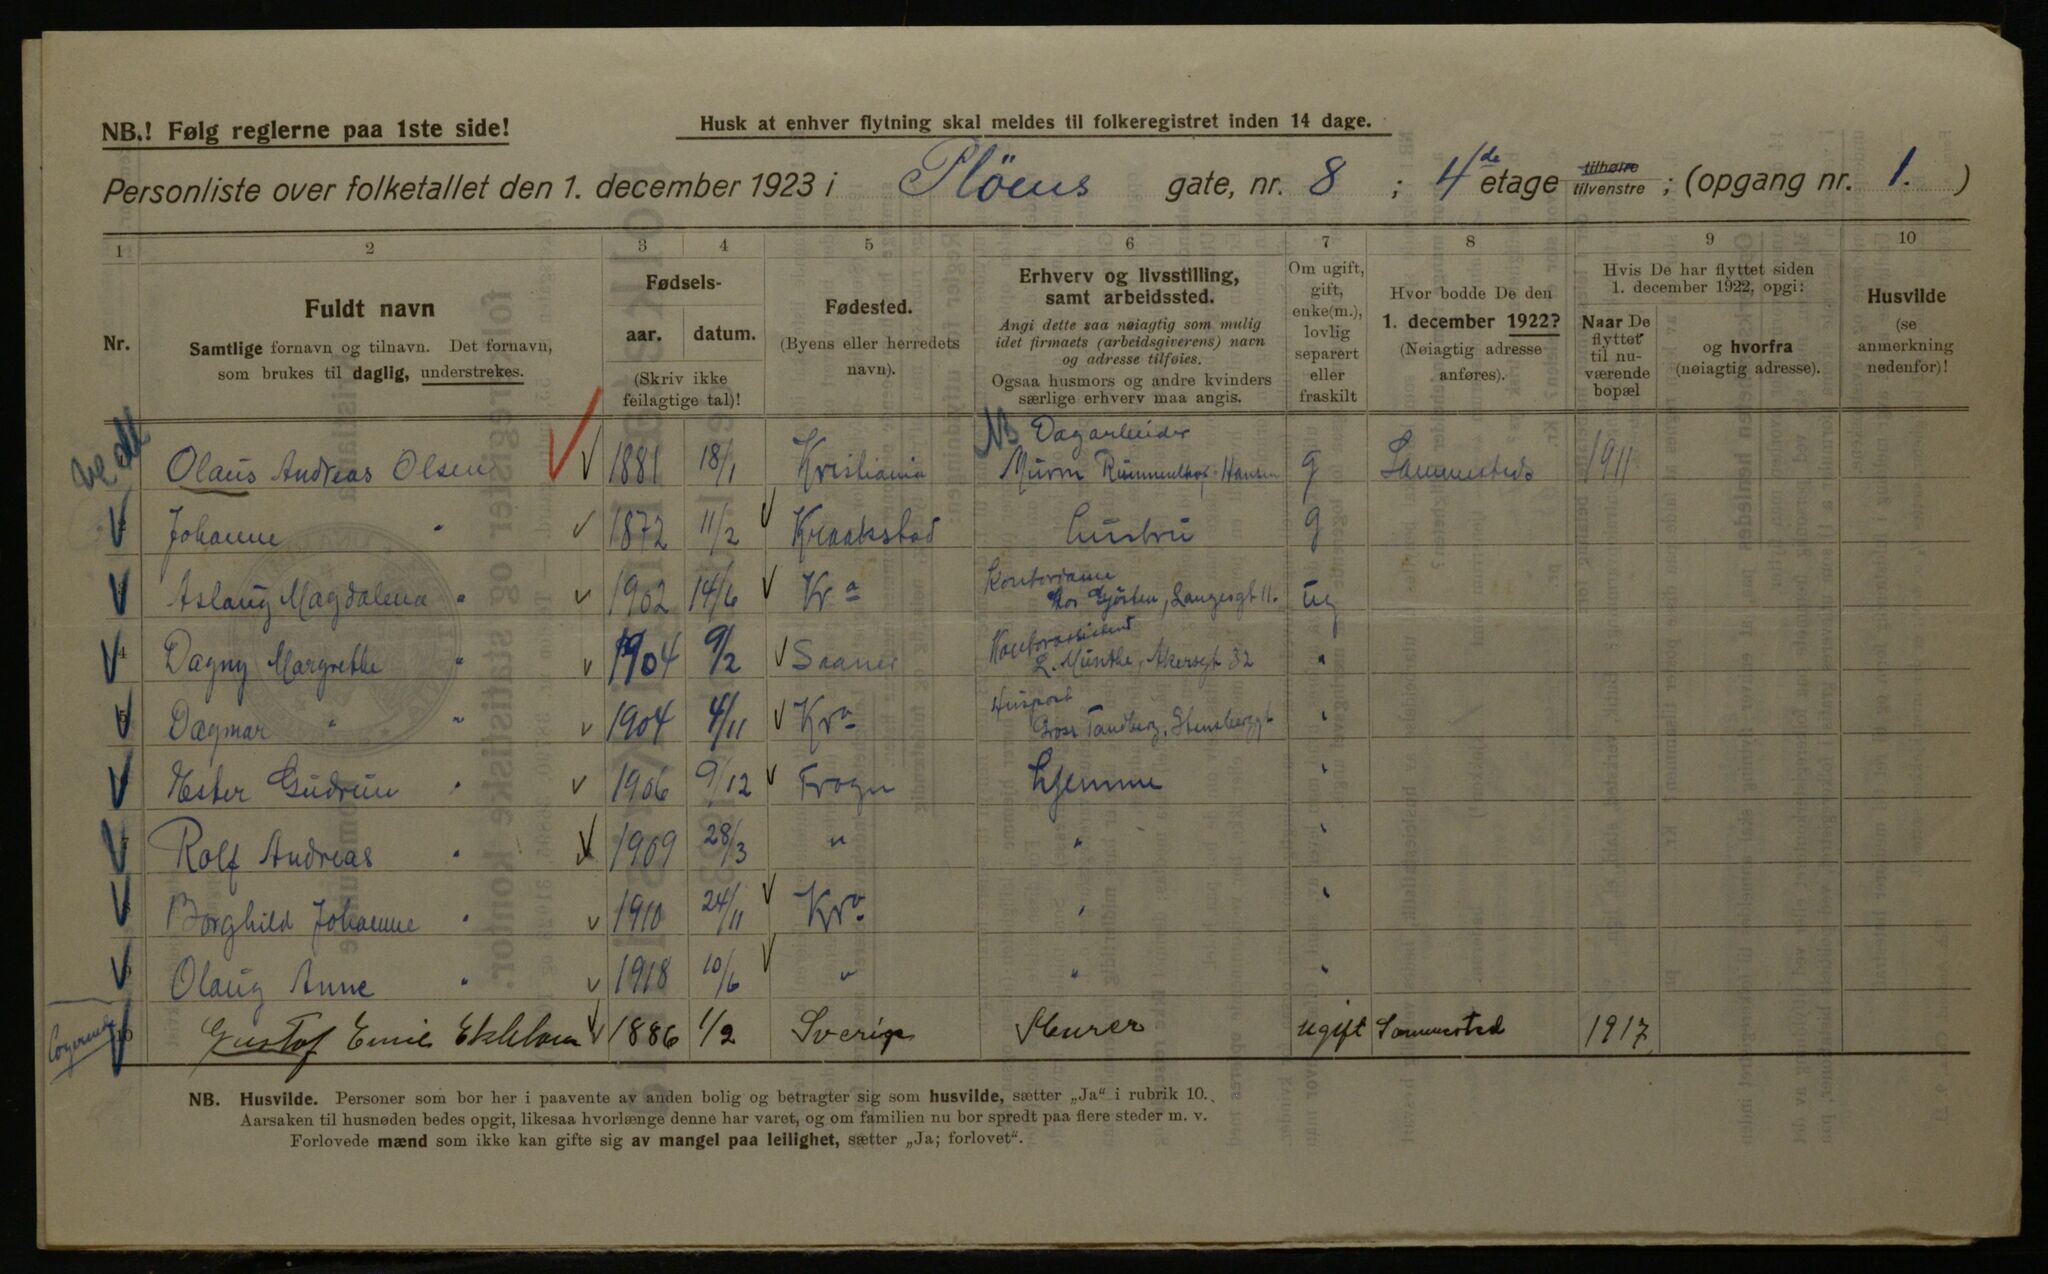 NB.! Følg reglerne paa 1ste side!
Husk at enhver flytning skal meldes til folkeregistret inden 14 dage.
Personliste over folketallet den 1. december 1923 i Plöens gate, nr. 8 ; 4de etage tilhøire tilvenstre ; (opgang nr. 1. )
1 2 3 4 5 6 7 8 9 10
Nr.
Fuldt navn
Samtlige fornavn og tilnavn. Det fornavn,
som brukes til daglig, understrekes.
Fødsels-
aar. datum.
(Skriv ikke
feilagtige tal)!
Fødested.
(Byens eller herredets
navn).
Erhverv og livsstilling,
samt arbeidssted.
Angi dette saa nøiagtig som mulig
idet firmaets (arbeidsgiverens) navn
og adresse tilføies.
Ogsaa husmors og andre kvinders
særlige erhverv maa angis.
Om ugift,
gift,
enke(m.),
lovlig
separert
eller
fraskilt
Hvor bodde De den
1. december 1922?
(Nøiagtig adresse
anføres).
Hvis De har flyttet siden
1. december 1922, opgi:
Naar De
flyttet
til nu-
værende
bopæl
og hvorfra
(nøiagtig adresse).
Husvilde
(se
anmerkning
nedenfor)!
NB Dagarbeider
Olaus Andreas Olsen 1881 18/1 Kristiania Murm Hansen g Sammesteds 1911
Johanne " 1872 11/2 Kraakstad Hustru g
Kontordame
Aslaug Magdalena " 1902 14/6 Kra hos Langesgt 11. ug
4 Kontorassistent
Dagny Margrethe " 1904 9/2 Saaner L. Munthe, Akersgt 32 "
Huspost
Dagmar " " 1904 4/11 Kra Tandberg, Stensberggt "
Ester Gudrun " 1906 9/12 Frogn Hjemme "
Rolf Andreas " 1909 28/3 " " "
Borghild Johanne " 1910 24/11 Kra " "
Olaug Anne " 1918 10/6 " " "
10 Gustaf Emil Ekblom 1886 1/2 Sverige Murer ugift Sammested 1917
NB. Husvilde. Personer som bor her i paavente av anden bolig og betragter sig som husvilde, sætter „Ja“ i rubrik 10.
Aarsaken til husnøden bedes opgit, likesaa hvorlænge denne har varet, og om familien nu bor spredt paa flere steder m. v.
Forlovede mænd som ikke kan gifte sig av mangel paa leilighet, sætter „Ja; forlovet“.